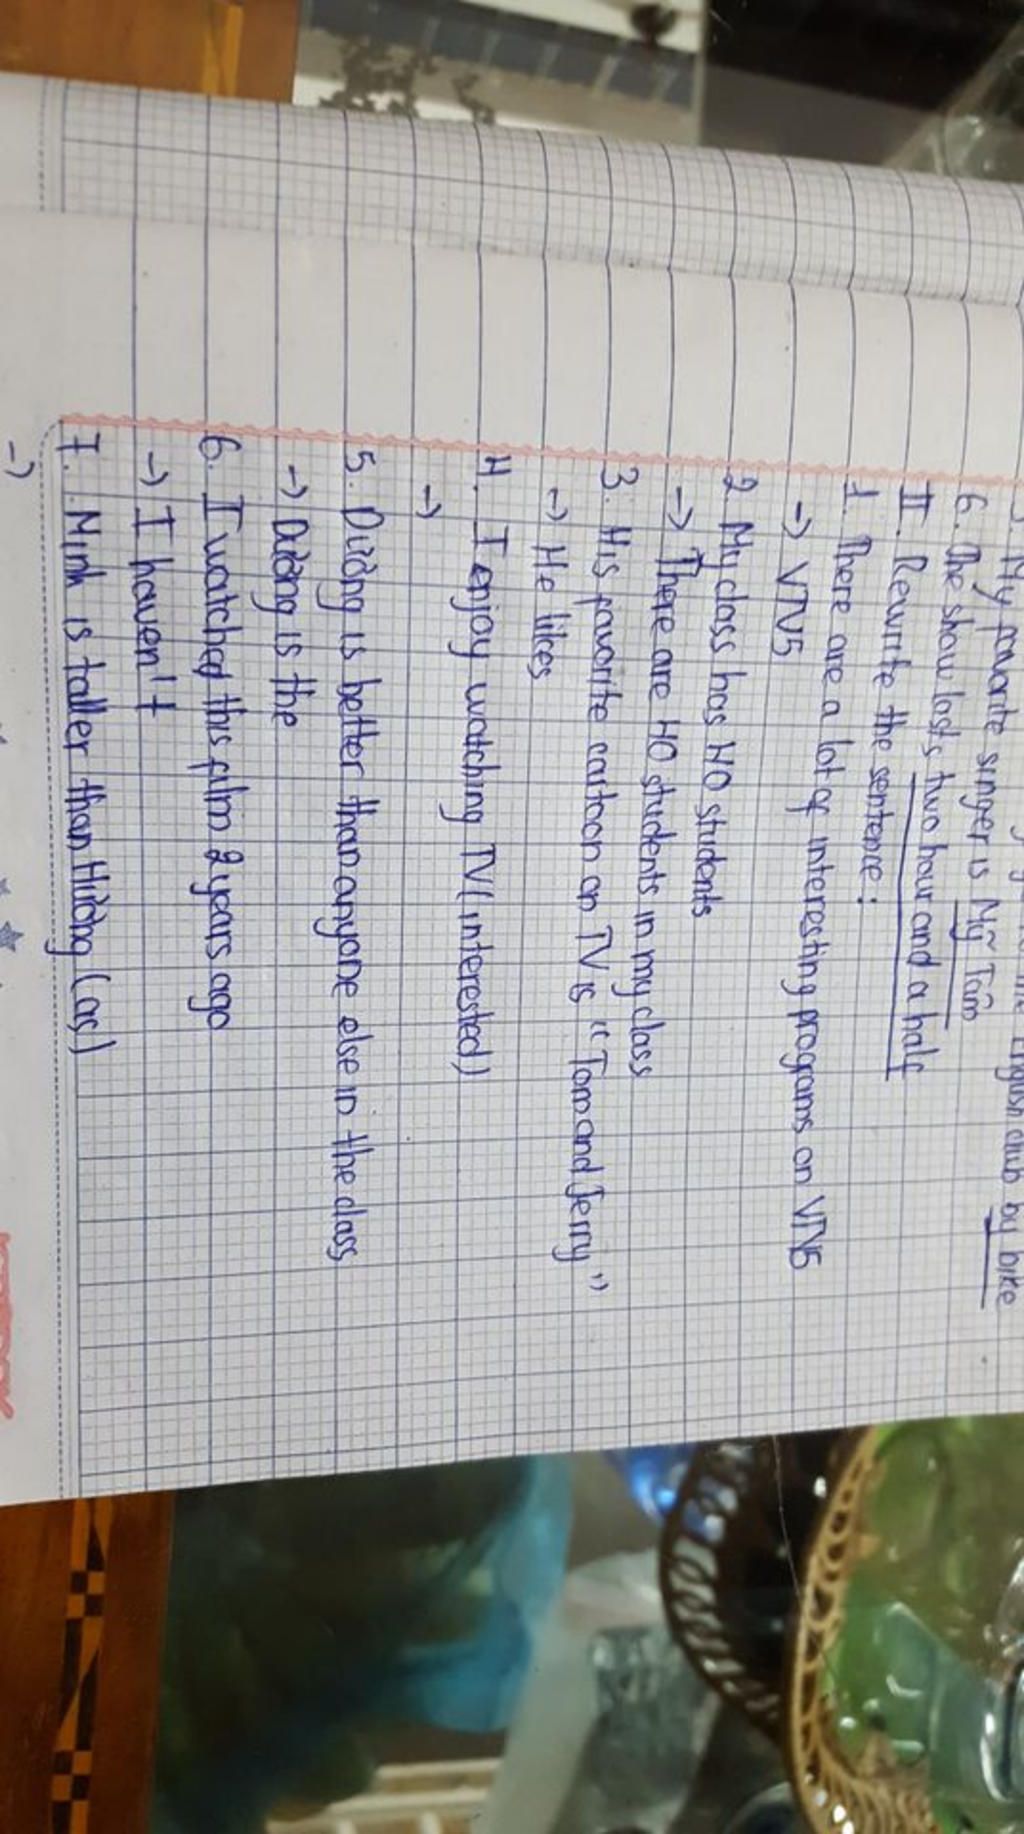 My favorite singer is Mỹ Tâm
6. The show lasts two hour and a half
II. Rewrite the sentence :
1. There are a lot of interesting programs on VTV5
-> VTV5
2. My class has 40 students
-> There are 40 students in my class
3. His favorite cartoon on TV is "Tom and Jerry"
-> He likes
4. I enjoy watching TV (interested)
->
5. Dương is better than anyone else in the class
-> Dương is the
6. I watched this film 2 years ago
-> I haven't
7. Minh is taller than Hương (as)
->